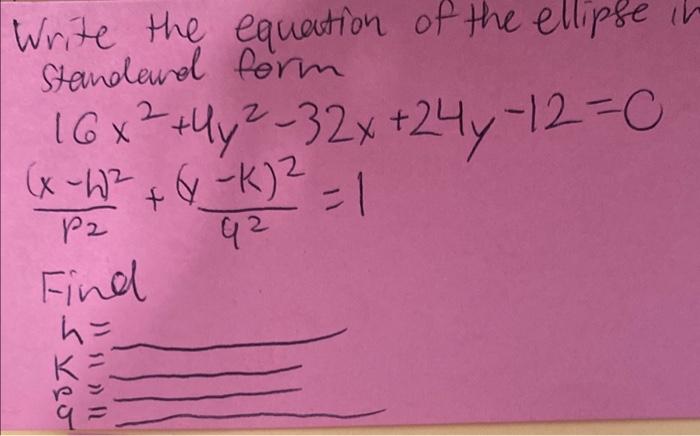 Write the equation of the ellipse in
standard form
16x²+4y²-32x+24y-12=0
(x-h)²/p2 + (y-k)²/q² = 1
Find
h=
K=
p=
q=